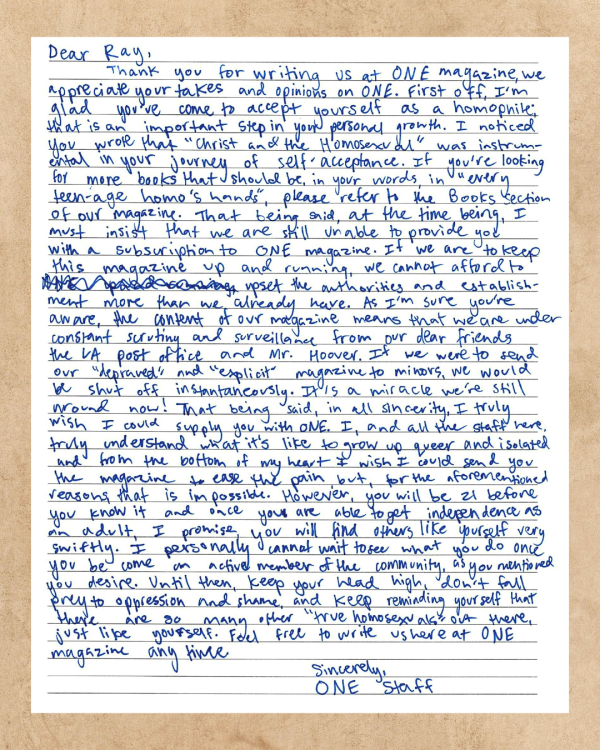 Dear Ray,
Thank you for writing us at ONE magazine, we
appreciate your takes and opinions on ONE. First off, I'm
glad you've come to accept yourself as a homophile;
that is an important step in your personal growth. I noticed
you wrote that "Christ and the Homosexual" was instrum-
ental in your journey of self-acceptance. If you're looking
for more books that should be, in your words, in "every
teen-age homo's hands", please refer to the Books section
of our magazine. That being said, at the time being, I
must insist that we are still unable to provide you
with a subscription to ONE magazine. If we are to keep
this magazine up and running, we cannot afford to
upset the authorities and establish-
ment more than we already have. As I'm sure you're
aware, the content of our magazine means that we are under
constant scrutiny and surveillance from our dear friends
the LA post office and Mr. Hoover. If we were to send
our "depraved" and "explicit" magazine to minors, we would
be shut off instantaneously. It is a miracle we're still
around now! That being said, in all sincerity, I truly
wish I could supply you with ONE. I, and all the staff here,
truly understand what it's like to grow up queer and isolated
and from the bottom of my heart I wish I could send you
the magazine to ease the pain, but, for the aforementioned
reasons, that is impossible. However, you will be 21 before
you know it and once you are able to get independence as
an adult, I promise, you will find others like yourself very
swiftly. I personally cannot wait to see what you do once
you become an active member of the community, as you mentioned
you desire. Until then, keep your head high, don't fall
prey to oppression and shame, and keep reminding yourself that
there are so many other "true homosexuals" out there,
just like yourself. Feel free to write us here at ONE
magazine any time
Sincerely,
ONE Staff